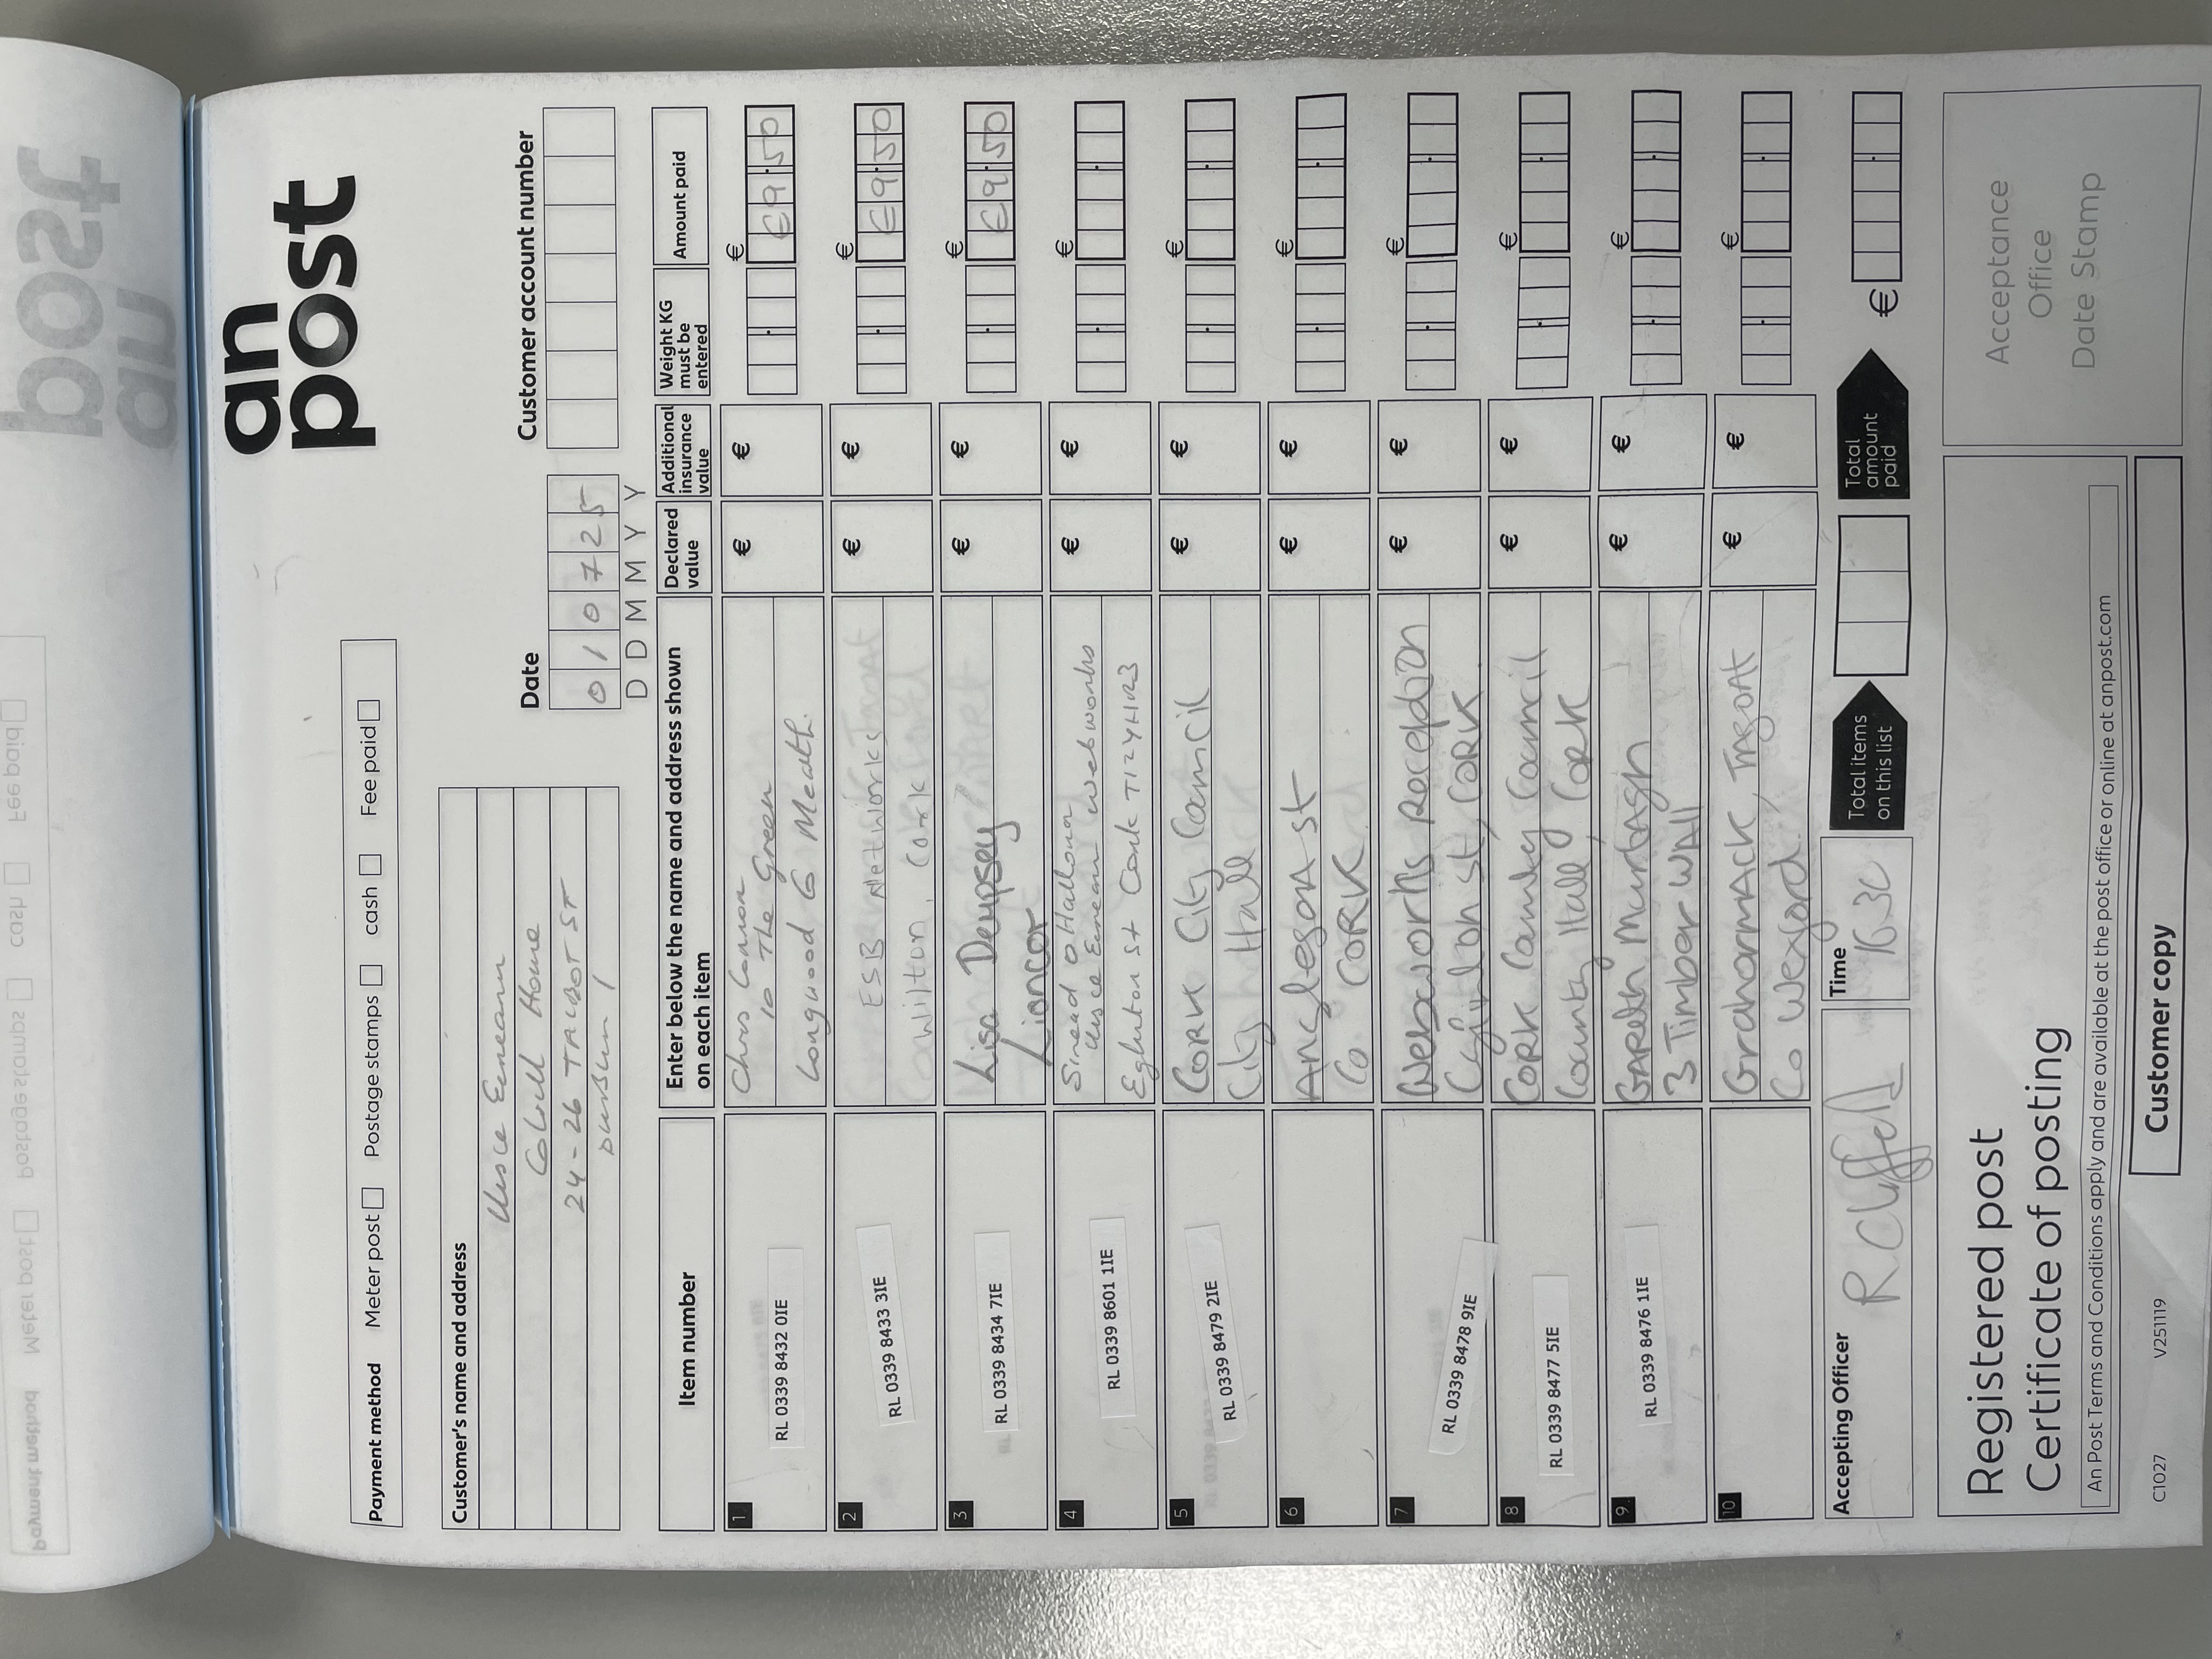 an
post
Payment method Meter post Postage stamps cash Fee paid
Customer's name and address
Uisce Eireann
Colvill House
24-26 TALBOT ST
DUBLIN 1
Date
010725
D D M M Y Y
Customer account number
Item number
Enter below the name and address shown
on each item
Declared
value
Additional
insurance
value
Weight KG
must be
entered
Amount paid
1 RL 0339 8432 0IE
Chris Cannon
10 The Green
Longwood Co Meath.
€ € € €9.50
2 RL 0339 8433 3IE
ESB Networks
Wilton, Cork
€ € € €9.50
3 RL 0339 8434 7IE
Lisa Dempsey
Lioncor
€ € € €9.50
4 RL 0339 8601 1IE
Sinead O Halloran
Uisce Eireann Webworks
Eglinton St Cork T12YHR3
€ € €
5 RL 0339 8479 2IE
CORK City Council
City Hall
€ € €
6
Anglesea St
Co. CORK
€ € €
7 RL 0339 8478 9IE
Webworks Reception
Eglinton St, CORK
€ € €
8 RL 0339 8477 5IE
CORK County Council
County Hall, CORK
€ € €
9 RL 0339 8476 1IE
GARETH Murtagh
3 Timber WAll
€ € €
10
Grahormack, TAGOAT
Co Wexford.
€ € €
Accepting Officer
Time
16.30
Total items
on this list
Total
amount
paid
€
Registered post
Certificate of posting
Acceptance
Office
Date Stamp
An Post Terms and Conditions apply and are available at the post office or online at anpost.com
C1027 V251119
Customer copy